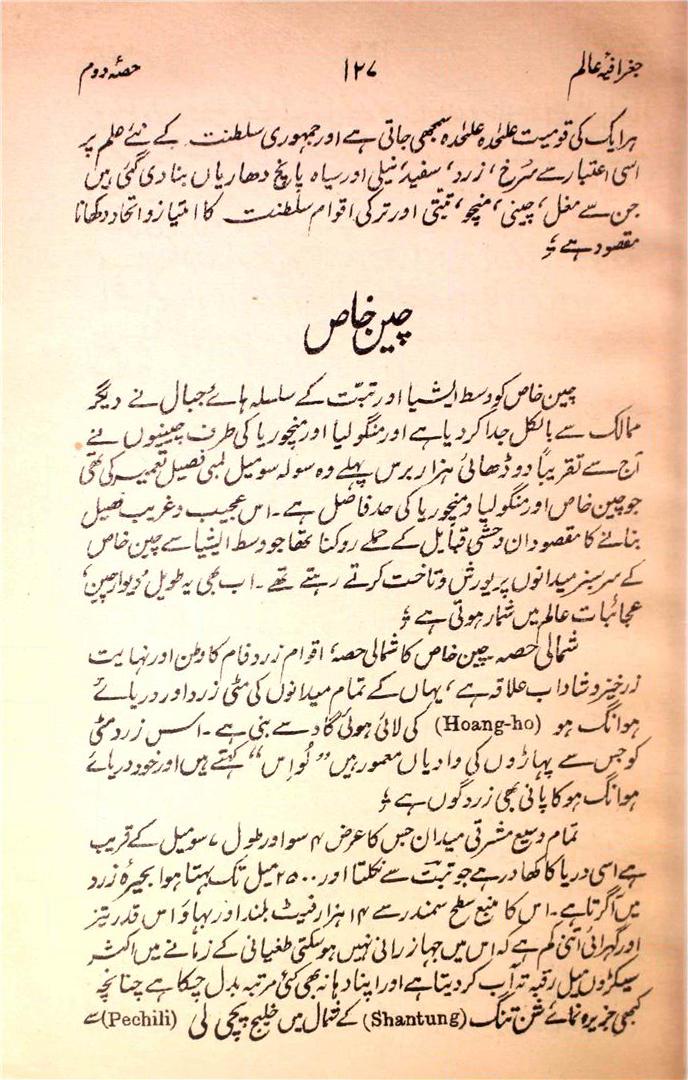 جغرافیۂ عالم ۱۲۷ حصّۂ دوم
ہرایک کی قومیت علیٰحدہ علیٰحدہ سمجھی جاتی ہے اور جمہوری سلطنت کے نئے علم پر
اسی اعتبار سے سُرخ، زرد، سفید، نیلی اور سیاہ پانچ دھاریاں بنا دی گئی ہیں
جن سے مغل، چینی، منچو، تبتی اور ترکی اقوام سلطنت کا امتیاز و اتحاد دکھانا
مقصود ہے ؛
چین خاص
چین خاص کو وسط ایشیا اور تبت کے سلسلہ ہائے جبال نے دیگر
ممالک سے بالکل جدا کر دیا ہے اور منگولیا اور منچوریا کی طرف چینیوں نے
آج سے تقریباً دو ڈھائی ہزار برس پہلے وہ سولہ سو میل لمبی فصیل تعمیر کی تھی
جو چین خاص اور منگولیا و منچوریا کی حد فاصل ہے۔ اس عجیب و غریب فصیل
بنانے کا مقصود ان وحشی قبایل کے حملے روکنا تھا جو وسط ایشیا سے چین خاص
کے سرسبز میدانوں پر یورش و تاخت کرتے رہتے تھے۔ اب بھی یہ طویل دیوار چین،
عجائبات عالم میں شمار ہوتی ہے ؛
شمالی حصہ۔ چین خاص کا شمالی حصہ، اقوام زرد فام کا وطن اور نہایت
زرخیز و شاداب علاقہ ہے، یہاں کے تمام میدانوں کی مٹی زرد اور دریائے
ہوانگ ہو (Hoang-ho) کی لائی ہوئی گاد سے بنی ہے۔ اس زرد مٹی
کو جس سے پہاڑوں کی وادیاں معمور ہیں ”لُواِس“ کہتے ہیں اور خود دریائے
ہوانگ ہو کا پانی بھی زرد گوں ہے ؛
تمام وسیع مشرقی میدان جس کا عرض ۴ سو اور طول ۷ سو میل کے قریب
ہے اسی دریا کا کھادر ہے جو تبت سے نکلتا اور ۲۵۰۰ میل تک بہتا ہوا بحیرۂ زرد
میں آگرتا ہے۔ اس کا منبع سطح سمندر سے ۱۴ ہزار فیٹ بلند اور بہاؤ اس قدر تیز
اور گہرائی اتنی کم ہے کہ اس میں جہاز رانی نہیں ہو سکتی طغیانی کے زمانے میں اکثر
سیکڑوں میل رقبہ تہ آب کر دیتا ہے اور اپنا دہانہ بھی کئی مرتبہ بدل چکا ہے چنانچہ
کبھی جزیرہ نمائے شن تنگ (Shantung) کے شمال میں خلیج پچی لی (Pechili) سے